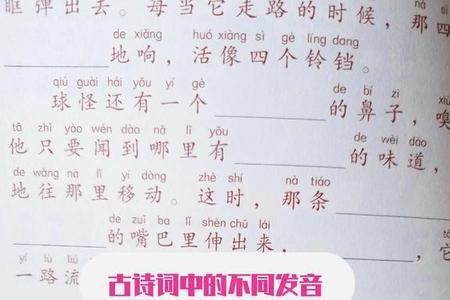 眶弹出去。每当它走路的时候，那四
de xiǎng huó xiàng sì gè líng dang
地响，活像四个铃铛。
qiú guài hái yǒu yí gè de bí zi
球怪还有一个的鼻子，嗅
tā zhǐ yào wén dào nǎ lǐ yǒu de wèi dào
他只要闻到哪里有的味道，
de wǎng nà lǐ yí dòng zhè shí nà tiáo
地往那里移动。这时，那条
de zuǐ ba lǐ shēn chū lái
的嘴巴里伸出来，它
yí lù liú
一路流
古诗词中的不同发音